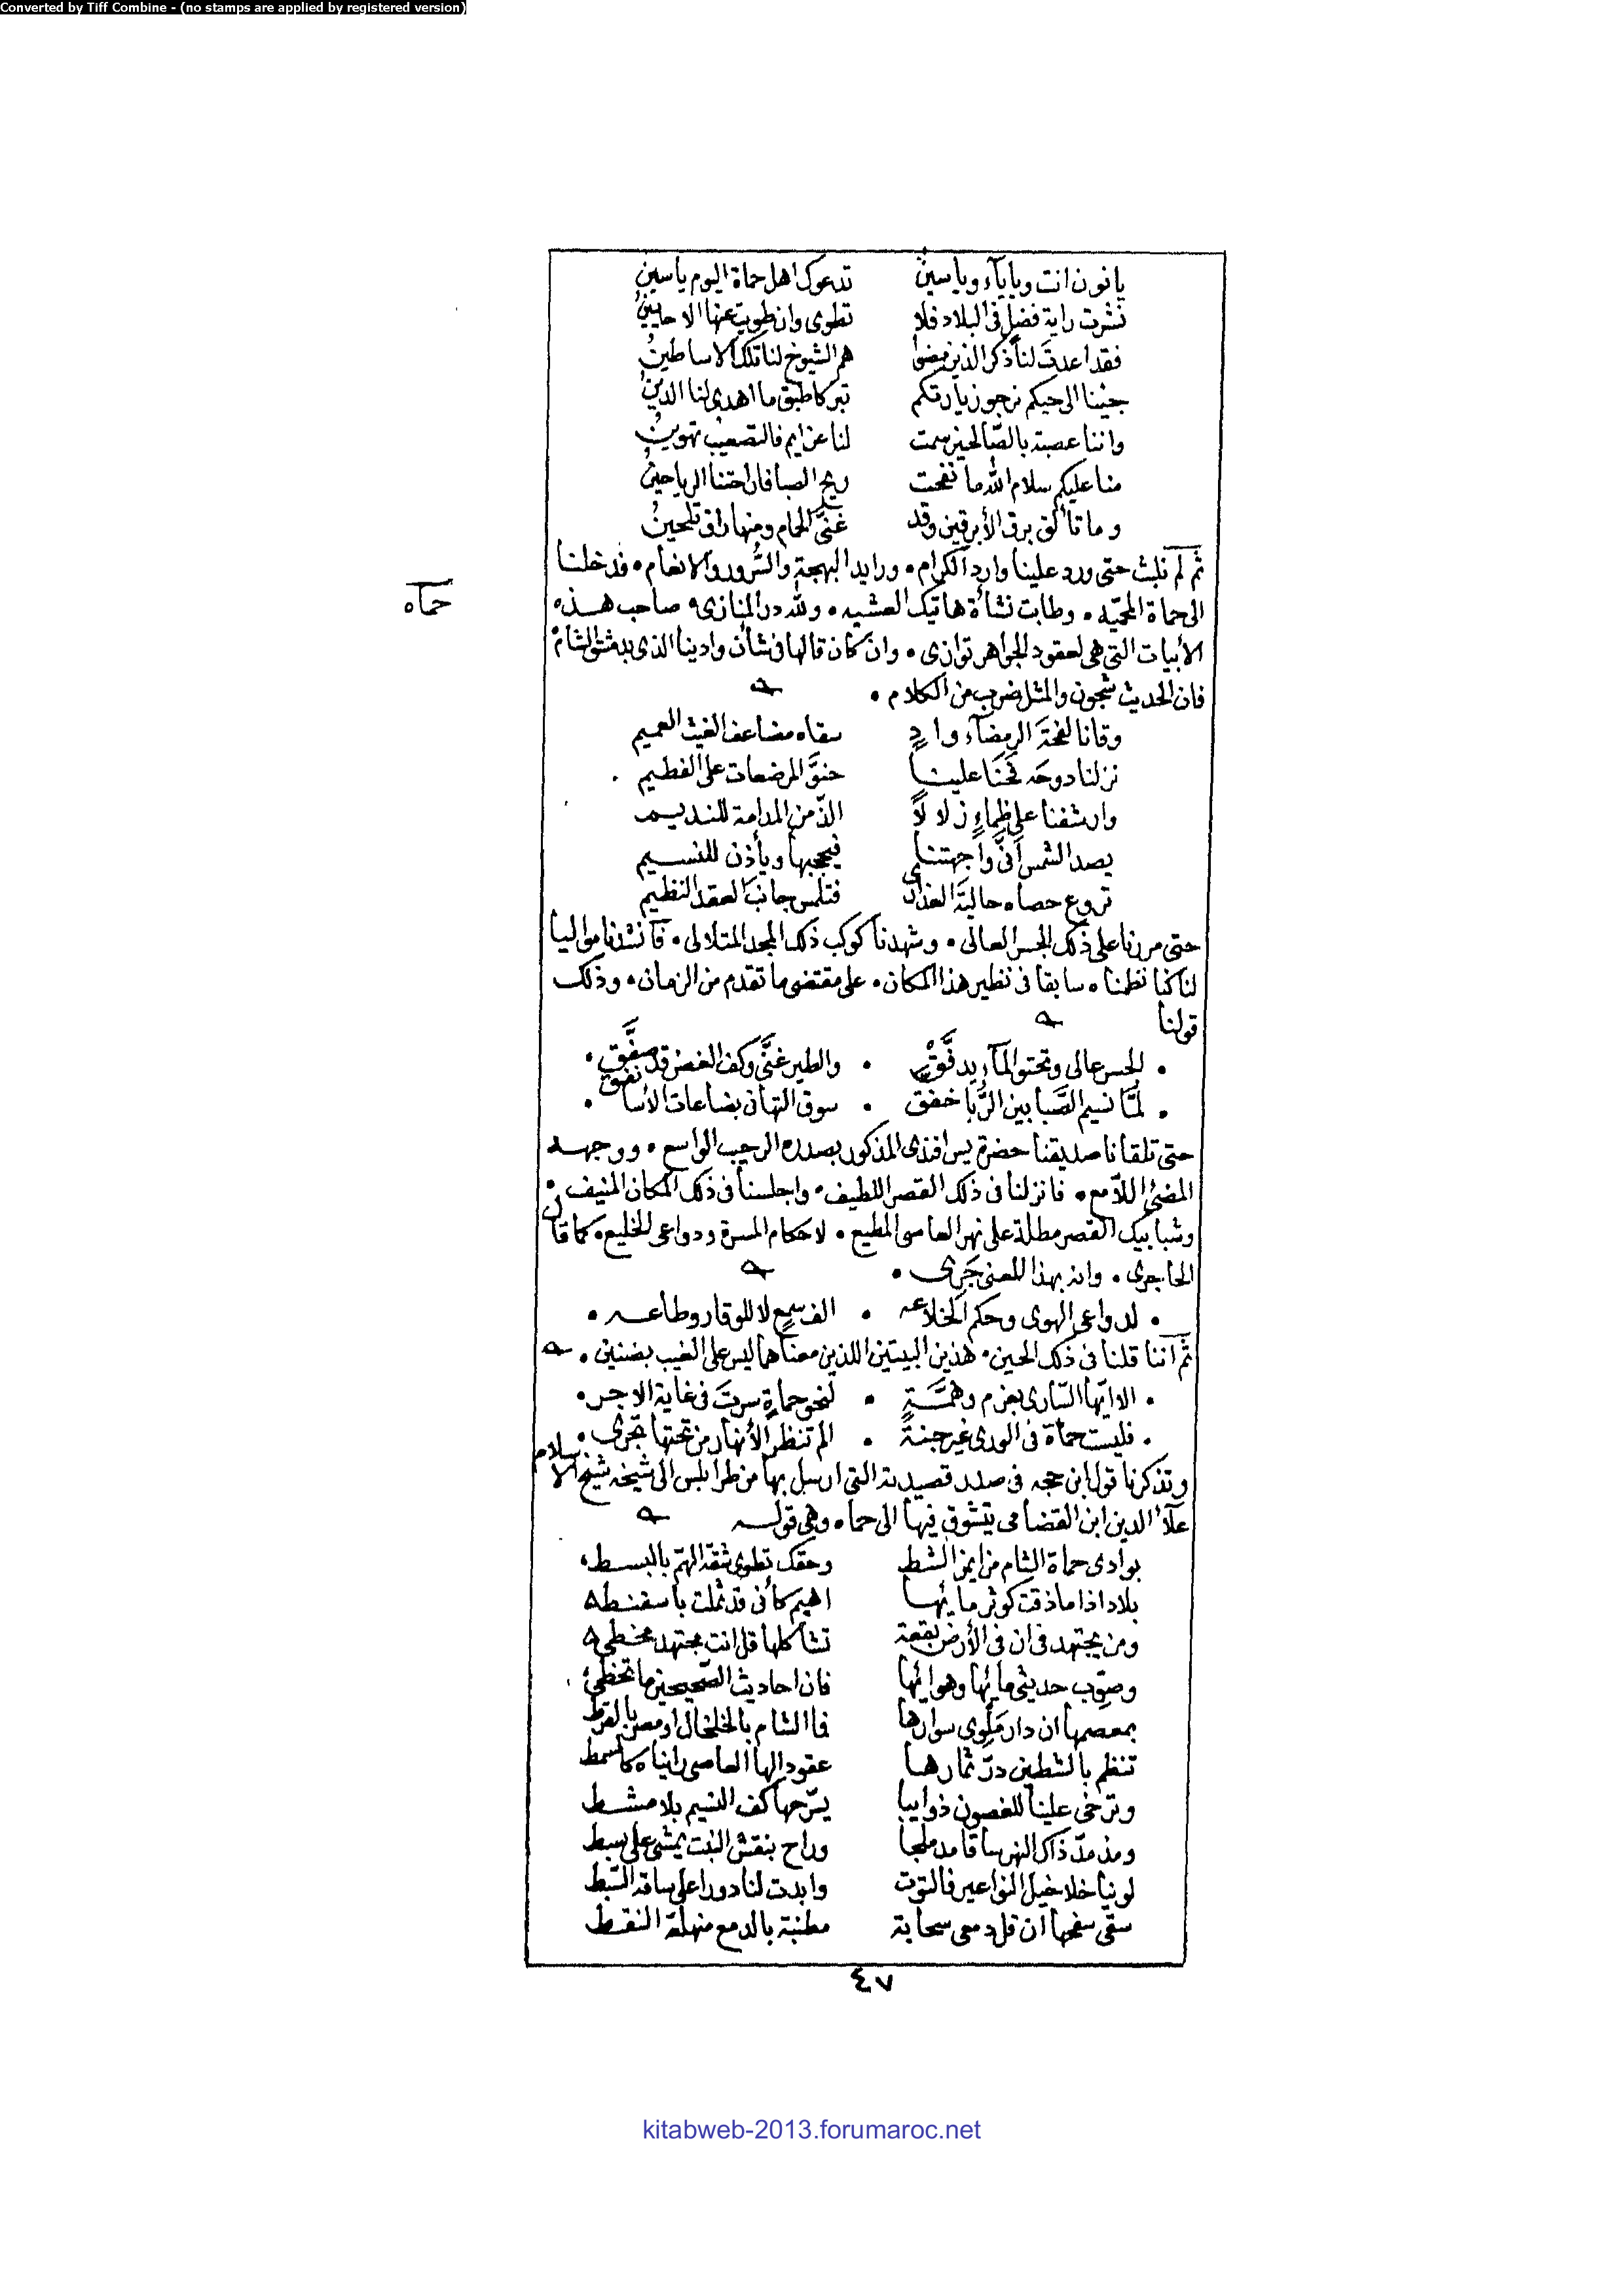 Converted by Tiff Combine - (no stamps are applied by registered version)
يا نون انت ويا ياء ويا سين تدعوك اهل حماة اليوم ياسين
نشرت راية فضل فى البلاد فلا تطوى وان طويت عنها الاحايين
فقد اعدت لنا ذكر الذين مضوا هم الشيوخ لنا تلك الاساطين
جئنا الى حيكم نرجو زيارتكم تبركا طبق ما اهدى لنا الدين
واننا عصبة بالصالحين سمت لنا عزايم فالتصعيب تهوين
منا عليكم سلام الله ما نفحت ريح الصبا فاراحتنا الرياحين
وما تألق برق الأبرقين وقد غنى الحمام ومنها راق تلحين
ثم لم نلبث حتى ورد علينا وارد الكرام • ورايد البهجة والسُّرور والانعام • فدخلنا
حماه
الى حماة المحميّه • وطابت نشأة هاتيك العشيه • ولله در المنازى • صاحب هذه
الأبيات التى هى لعقود الجواهر توازى • وان كان قالها فى شأن وادينا الذى بدمشق الشام
فان الحديث شجون والمثل ضرب من الكلام •
وقانا لفحة الرمضآء وادٍ سقاه مضاعف الغيث العميم
نزلنا دوحه فحنا علينا حنوّ المرضعات على الفطيم
وارشفنا على ظماءٍ زلالاً الذّ من المدامة للنديم
يصد الشمس انّى واجهتنا فيحجبها ويأذن للنسيم
تروع حصاه حالية العذارى فتلمس جانب العقد النظيم
حتى مررنا على ذلك الجسر العالى • وشهدنا كوكب ذلك المجد المتلالى • فآنشدنا مواليا
لنا كنا نظمناه سابقا فى نظير هذا المكان • على مقتضى ما تقدم من الزمان • وذلك
قولنا
• الجسر عالى وتحتو المآ يدفَّق • والطير غنَّى وكف الغصن قد صفَّق •
• لمّا نسيم الصَّبا بين الرُّبا خفق • سوق التهانى بضاعات الأسا نفق •
حتى تلقانا صديقنا حضرة يس افندى المذكور بصدره الرحيب الواسع • ووجهه
المضئ اللآمع • فانزلنا فى ذلك القصر اللطيف • واجلسنا فى ذلك المكان المنيف •
وشبابيك القصر مطلة على نهر العاصى المطيع • لاحكام المسرة ودواعى الخليع • كما قال
الحاجرى • وانه بهذا المعنى جَرى •
• لدواعى الهوى وحكم الخلاعه • الف سمع لا للوقار وطاعه •
ثم اننا قلنا فى ذلك الحين • هذين البيتين اللذين معناهما ليس على الغيب بضنين •
• الا ايّها السّارى بعزم وهمَّةٍ • لنحو حماةٍ سرتَ فى غاية الاجر •
• فليست حماة فى الورى غير جنةٍ • الم تنظر الأنهار من تحتها تجرى •
وتذكرنا قول ابن حجه فى صدر قصيدته التى ارسل بها من طرابلس الى شيخه شيخ الاسلام
علآء الدين ابن القضامى يتشوق فيها الى حماه وهى قوله
بوادى حماة الشام من ايمن الشط وحقك تطوى شقة الهمّ بالبسط
بلاد اذا ما ذقت كوثر مايها اهيم كأنى قد ثملت باسفنطه
ومن يجتهد فى ان فى الأرض بقعة تشاكلها قل انت مجتهد مخطى
وصوّب حديثى مائها وهوائها فان احاديث الصّحيحين ما تخطئ
بمعصمها ان دار ملوى سوارها فما الشام بالخلخال او مصر بالقرط
تنظم بالشطين درّ ثمارها عقودا لها العاصى رايناه كالسمط
وترخى علينا للغصون ذوايبا يسرّحها كف النسيم بلا مشط
ومذ مدّ ذاك النهر ساقا مدملجا وراح بنقش النبت يمشى على بسط
لوينا خلاخيل النواعير فالتوت وابدت لنا دورا على ساقه السّبط
سقى سفحها ان قل دمعى سحابة مطنبة بالدمع منهلة النقط
٤٧
kitabweb-2013.forumaroc.net